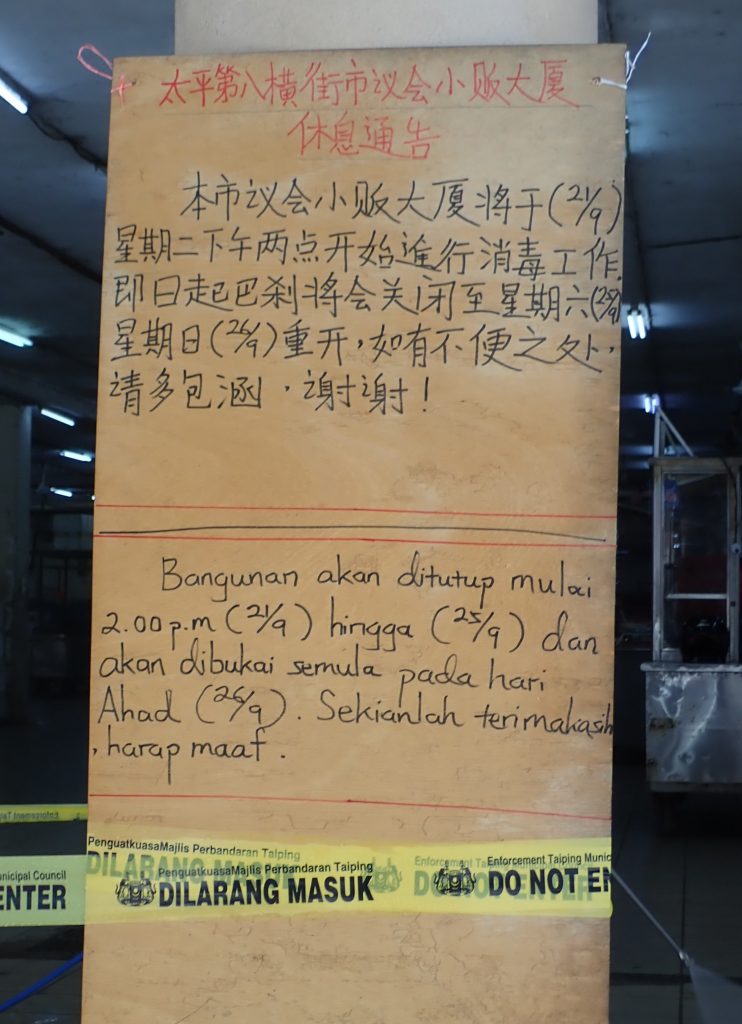 太平第八横街市议会小贩大厦
休息通告
本市议会小贩大厦将于(21/9)
星期二下午两点开始進行消毒工作.
即日起巴刹将会关闭至星期六(25/9)
星期日(26/9)重开,如有不便之处,
请多包涵,谢谢!
Bangunan akan ditutup mulai
2.00p.m (21/9) hingga (25/9) dan
akan dibukai semula pada hari
Ahad (26/9). Sekianlah terimakasih
, harap maaf.
PenguatkuasaMajlis Perbandaran Taiping
DILARANG MASUK
PenguatkuasaMajlis Perbandaran Taiping
DILARANG MASUK
Enforcement Taiping Munic
DO NOT EN
unicipal Council
ENTER